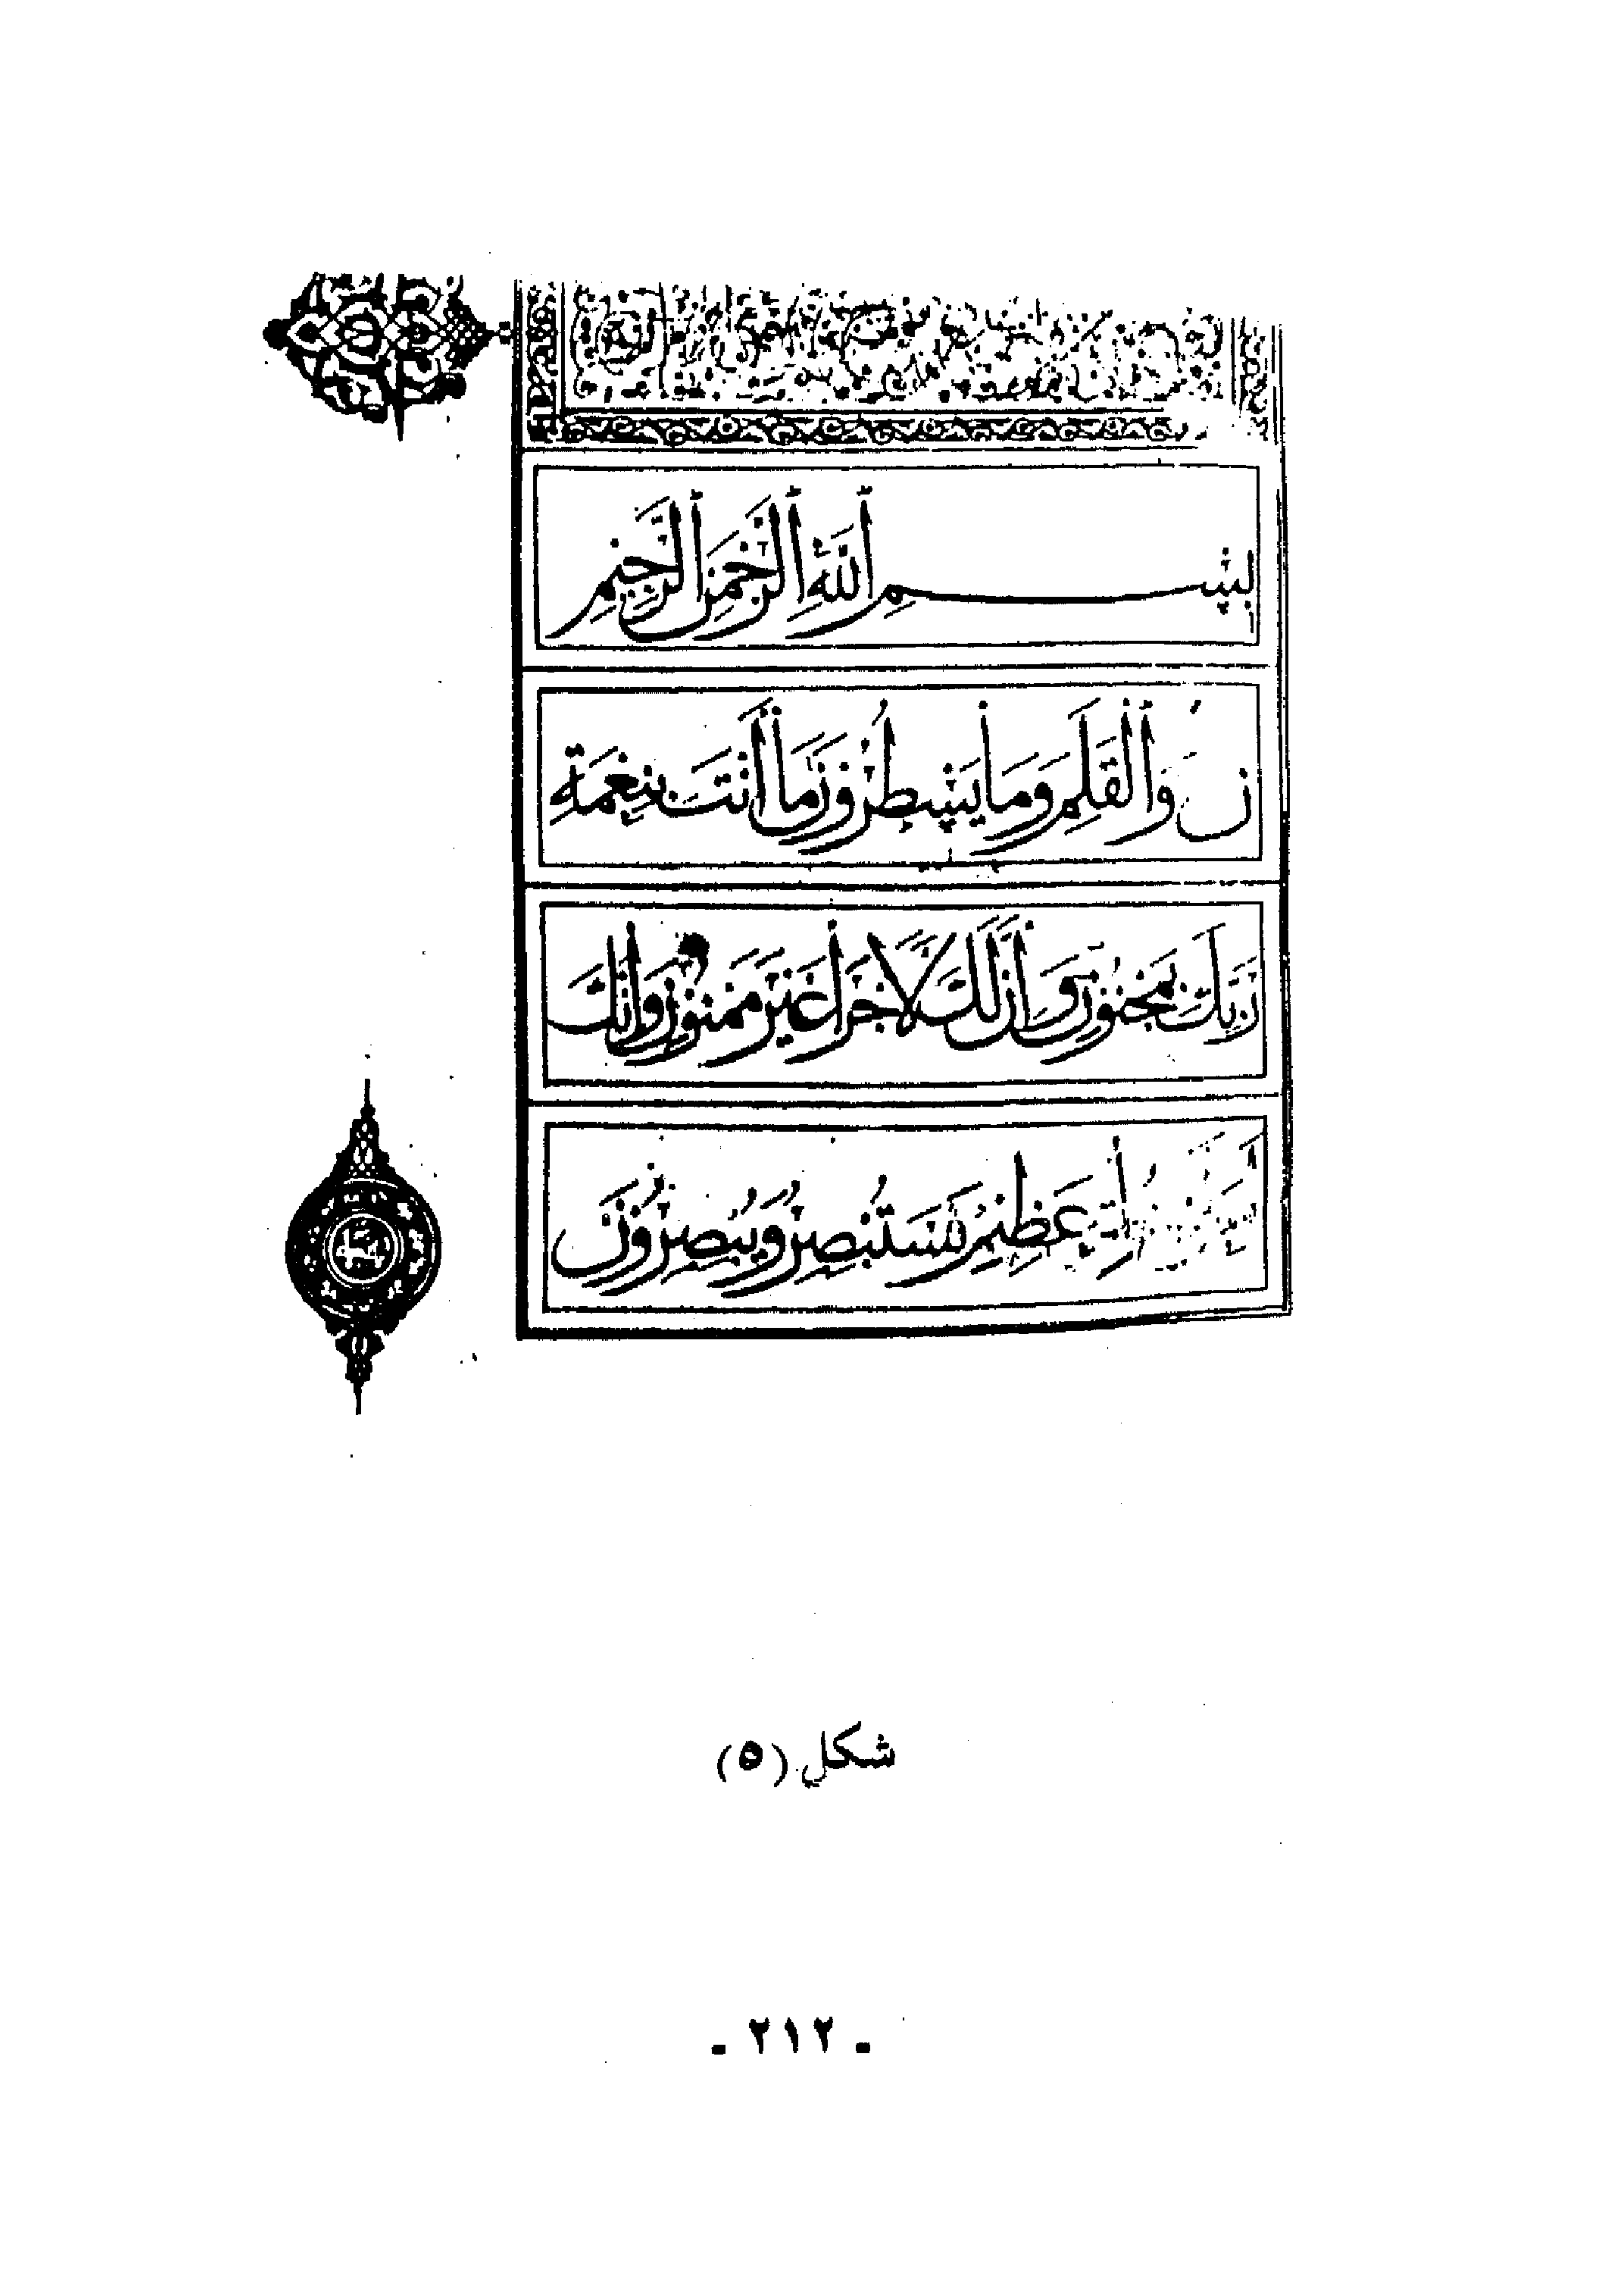 بِسْمِ اللَّهِ الرَّحْمَنِ الرَّحِيمِ
ن وَالْقَلَمِ وَمَا يَسْطُرُونَ مَا أَنْتَ بِنِعْمَةِ
رَبِّكَ بِمَجْنُونٍ وَإِنَّ لَكَ لَأَجْرًا غَيْرَ مَمْنُونٍ وَإِنَّكَ
عَظِيمٍ فَسَتُبْصِرُ وَيُبْصِرُونَ
شكل (٥)
- ٢١٢ -